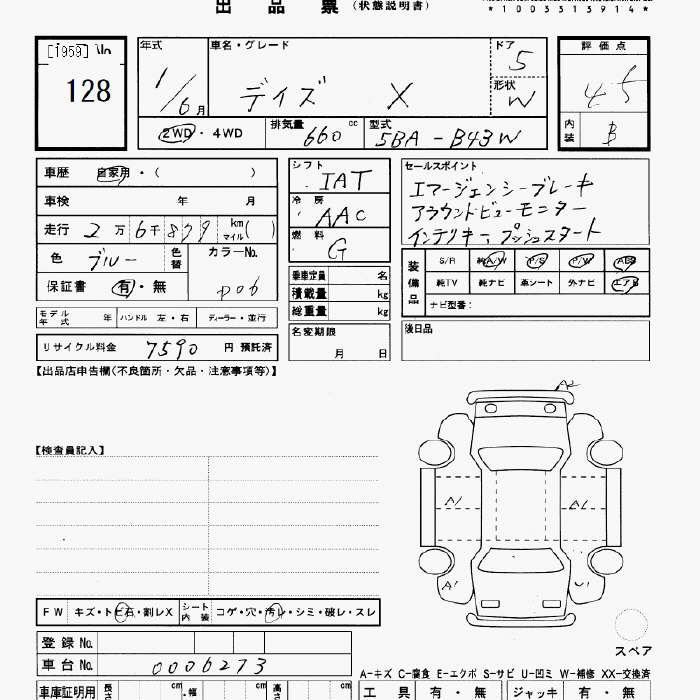 出品票（状態説明書）
*1003313914*
[1959] 1/n
128
年式
1/6月
車名・グレード
デイズ X
ドア
5
形状
W
評価点
4.5
内装
B
2WD・4WD
排気量 660 cc
型式 5BA-B43W
車歴 自家用・（ ）
車検 年 月
走行 2万6千879 km マイル( )
色 ブルー 色替
カラーNo.
保証書 有・無
モデル年式 年 ハンドル 左・右 ディーラー・並行
リサイクル料金 7590 円 預託済
シフト IAT
冷房 AAC
燃料 G
乗車定員 名
積載量 kg
総重量 kg
名変期限
月 日
セールスポイント
エマージェンシーブレーキ
アラウンドビューモニター
インテリキー、プッシュスタート
装備品
S/R 純A/W P/S P/W ABS
純TV 純ナビ 革シート 外ナビ エアB
ナビ型番：
後日品
【出品店申告欄（不良箇所・欠品・注意事項等）】
【検査員記入】
A2
A1
A1
A1
U1
スペア
FW キズ・トビ石・割レX シート内装 コゲ・穴・汚レ・シミ・破レ・スレ
登録No.
車台No. 0006273
A-キズ C-腐食 E-エクボ S-サビ U-凹ミ W-補修 XX-交換済
車庫証明用 長さ cm・幅 cm 高さ cm
工具 有・無 ジャッキ 有・無